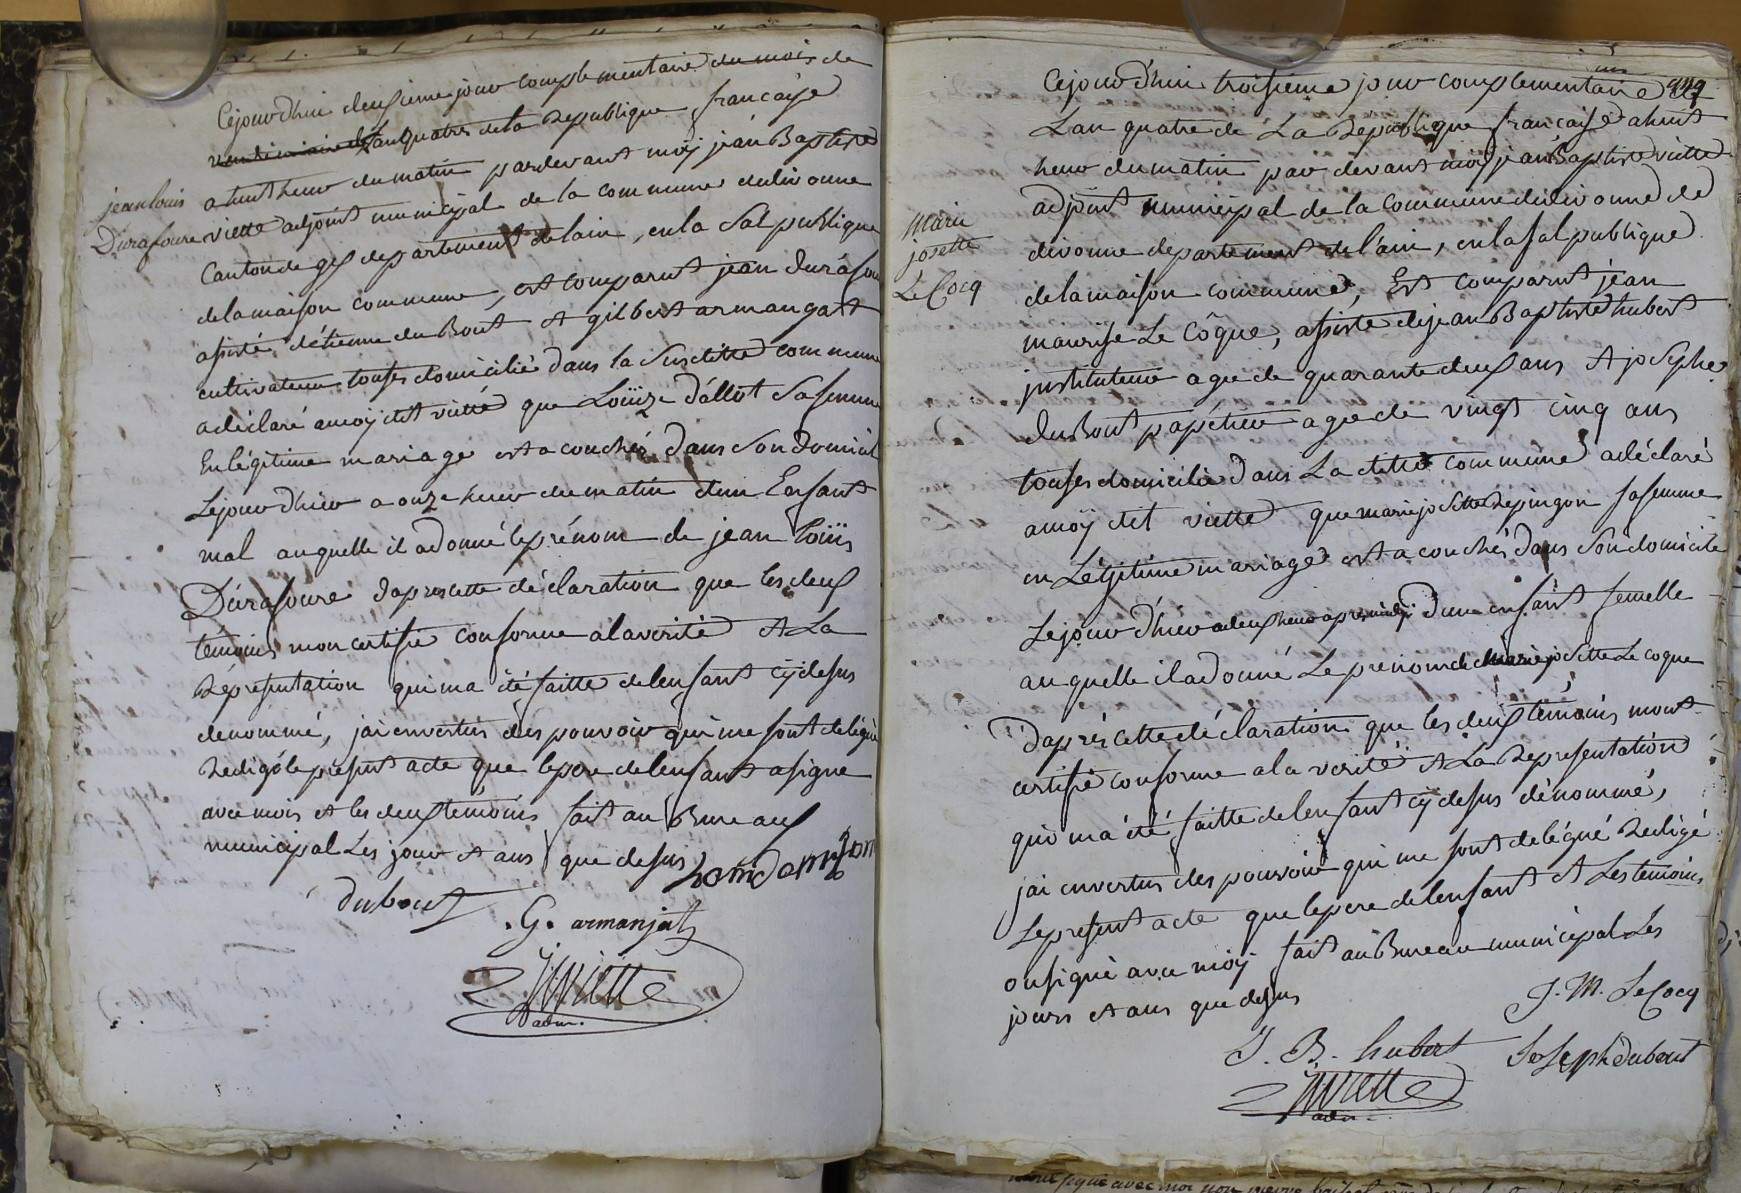 Cejourdhui deuxieme jour complementaire du mois de
vendemiaire de Lan quatres de la Republique française
a huit heure du matin pardevant moÿ jean Baptiste
jean louis
Durafoure
viette adjoint municipal de la commune de divonne
Canton de gex departement de lain, en la Sal publique
de la maison commune, est comparut jean durafou
assisté détienne du Bout et gilbert armangat
cultivateur touses domicilié dans la Susditte commune
a déclaré a moÿ dit viette que Loüize Dallot Sa femme
En légitime mariage est a couchéé dans Son domicil
Le jour dhier a onze heur du matin dun Enfant
mal au quelle il a donné le prénom de jean loüis
Durafoure dapres cette déclaration que les deux
témoins mon certifié conforme a la verité et La
Représentation qui ma été faitte de lenfant cÿ desus
denommé, jai envertus des pouvoir qui me sont delégué
Redigé le présent acte que le pere de lenfant a signe
avec mois et les deux temoins fait au Bureaux
municipal Les jour et ans que desus
dubout
. G. armanjat
JBviette
adm.
Cejourdhui troisieme jour complementaire de
Lan quatre de La Republique française a huit
heur du matin par devant moÿ jean Baptiste viette
adjoint municipal de la commune de divonne de
marie
josette
Le Cocq
divonne departement de lain, en la sal publique
de la maison commune, Est comparut jean
maurise Le Côque, assiste de jean Baptiste hubert
justituteur age de quarante deux ans et josephe
du Bout papétier age de vingt cinq ans
touses domicilie dans La ditte commune a déclaré
a moÿ dit viette que marie josette Répingon sa femme
en Légitime mariage est a couchéé dans Son domicile
Le jour dhier a deux heur apres midÿ dune enfant femelle
au quelle il a donné Le prenom de Marie josette Le coque
Daprès cette déclaration que les deux témoins mont
certifié conforme a la verité et La Representation
qui ma été faitte de lenfant cÿ desus dénommé,
jai envertus des pouvoir qui me sont delégué Redigé
Le present acte que le pere de lenfant et Les temoins
on signé avec moÿ fait au Bureau municipal Les
jours et ans que desus
J. M. LeCocq
J. B. hubert Joseph dubout
JBviette
adm.